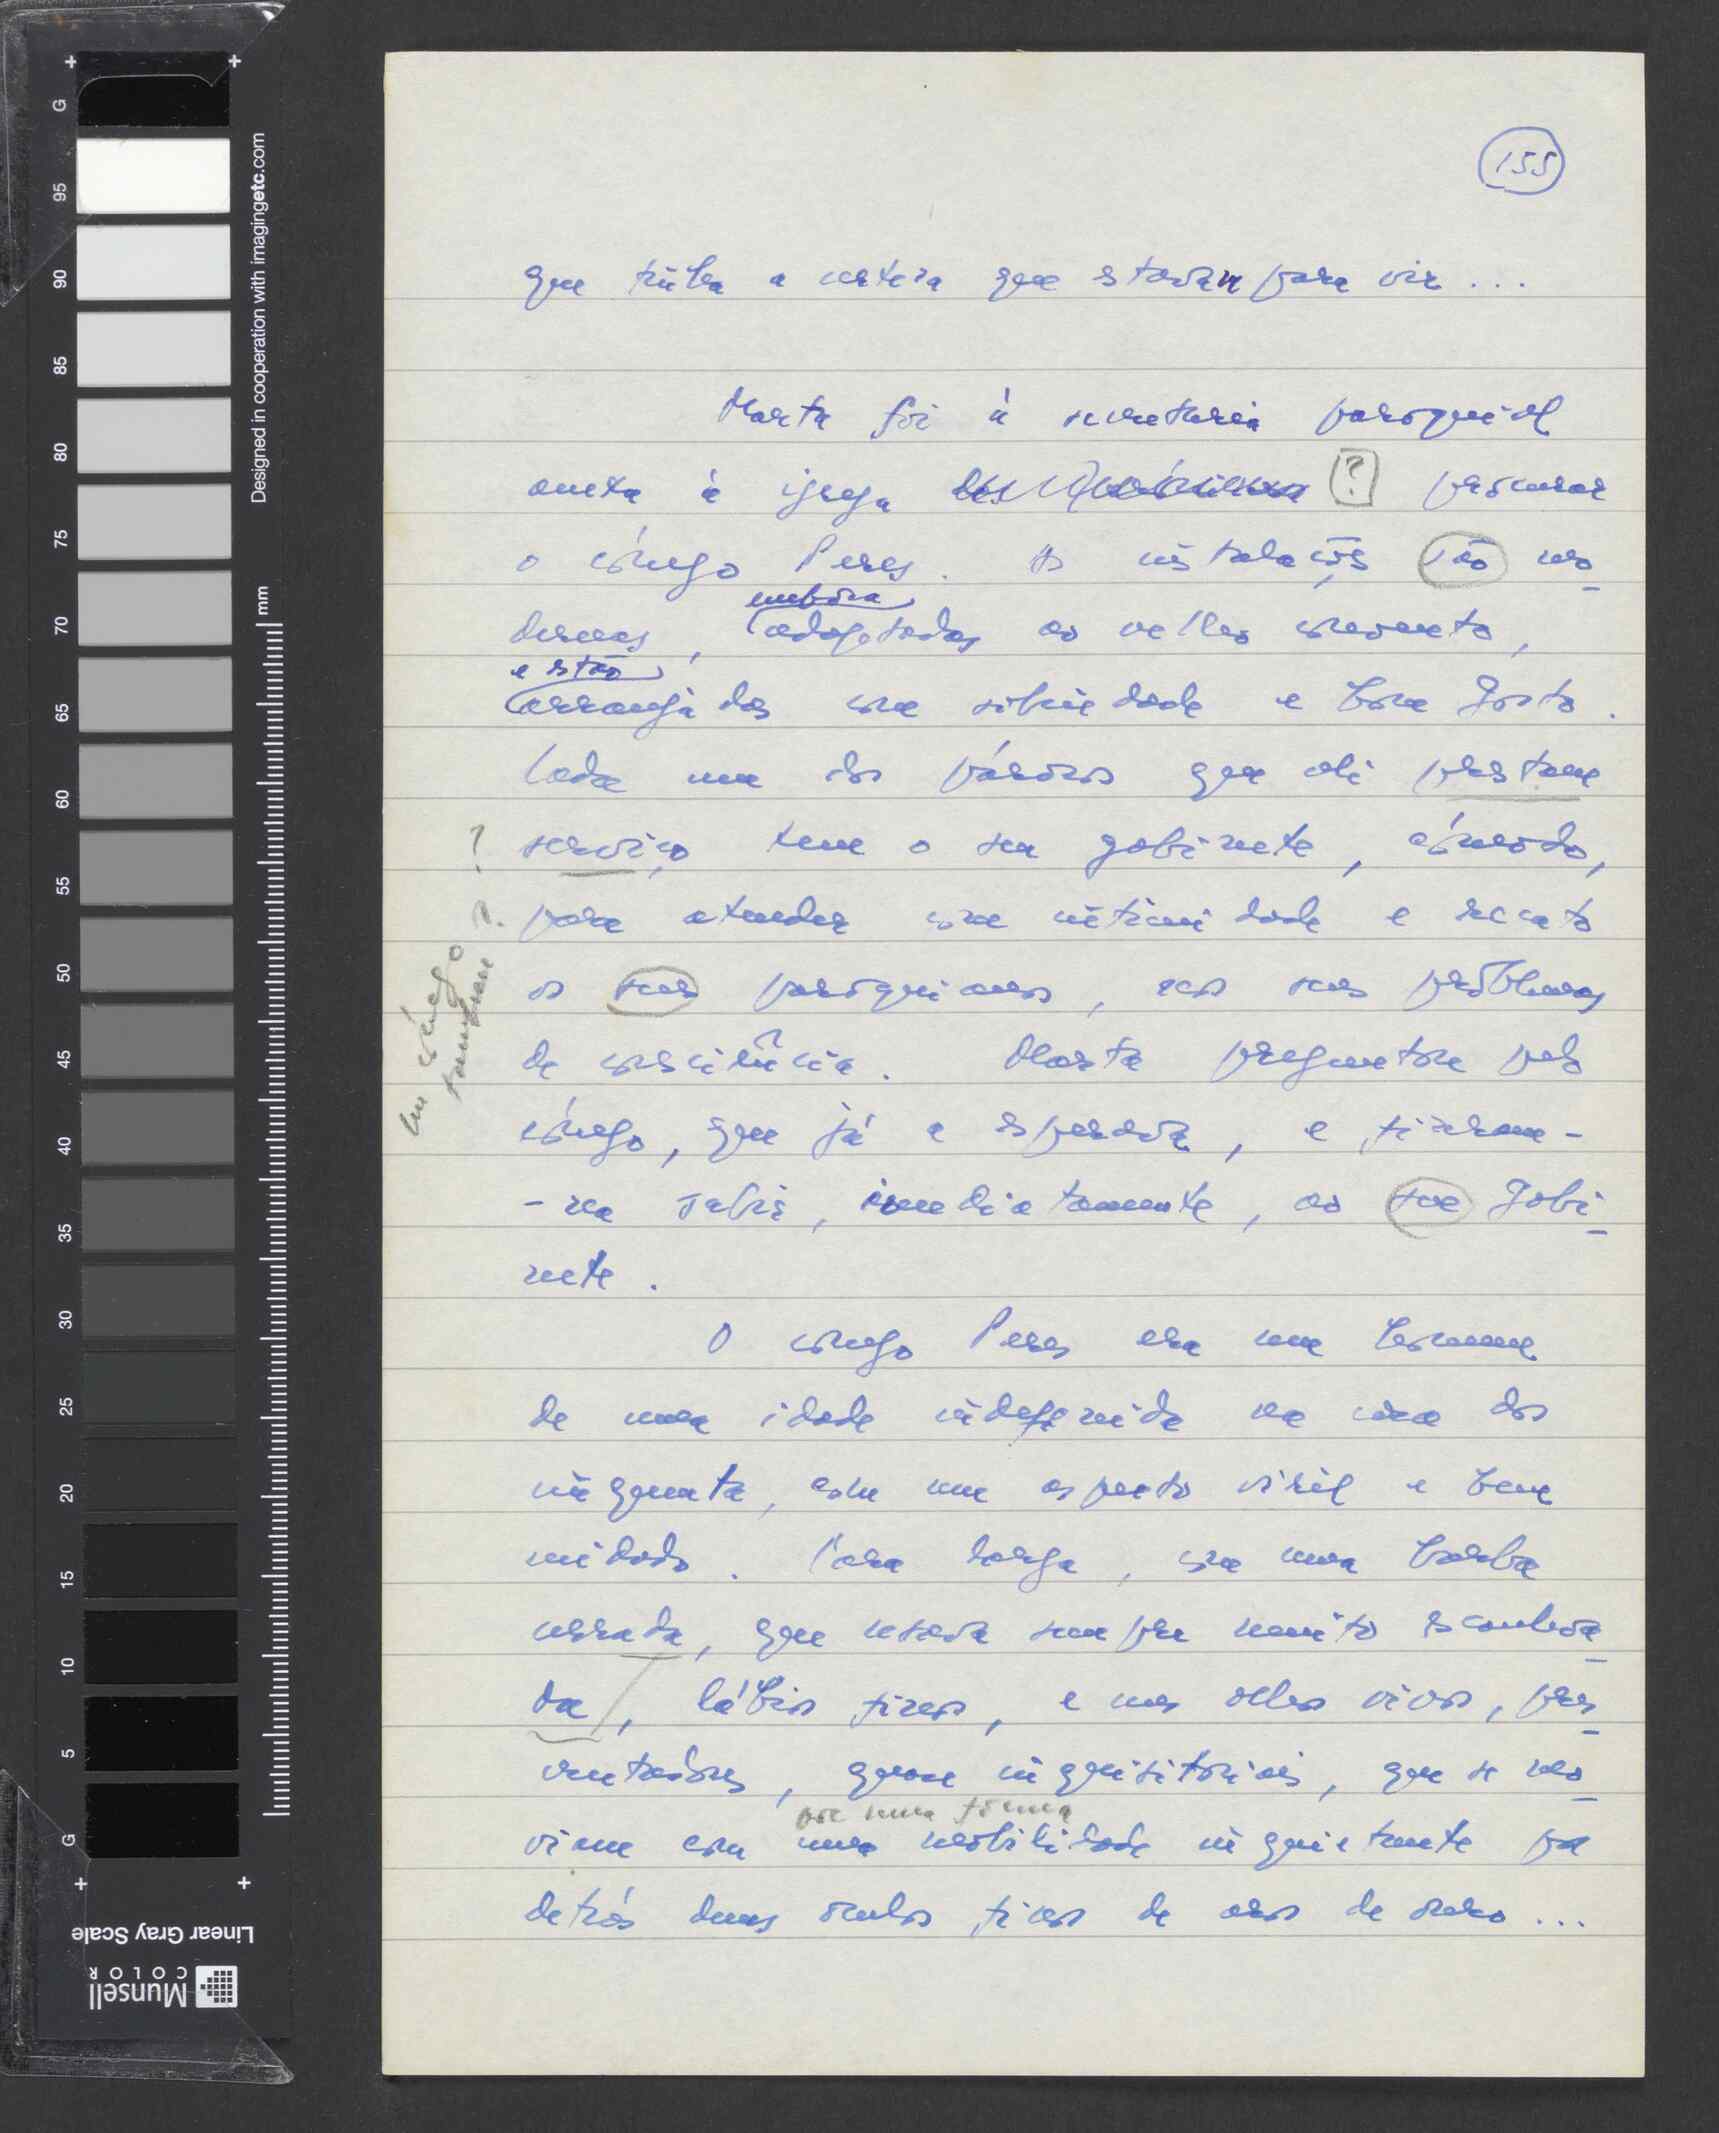 155
que tinha a certeza que estavam para vir...
Marta foi à secretaria paroquial
anexa à igreja [?] procurar
o cónego Peres. As instalações são mo
embora
dernas, adaptadas ao velho convento,
e estão
arranjadas com sobriedade e bom gosto.
Cada um dos párocos que ali prestam
? serviço tem o seu gabinete, cómodo,
para atender com intimidade e recato
os seus paroquianos, nos seus problemas
de consciência. Marta preguntou pelo
cónego, que já a esperava, e fizeram-
-na subir, imediatamente, ao seu gabi
nete.
um cónego
O cónego Peres era um homem
de uma idade indefinida na casa dos
cinquenta, com um aspecto viril e bem
cuidado. Cara larga, com uma barba
cerrada, que usava sempre muito escanhoa
da, lábios finos, e uns olhos vivos, pers
crutadores, quase inquisitoriais, que se mo
por uma forma
viam com uma mobilidade inquietante por
detrás duns óculos finos de aros de ouro...
95
90
85
80
75
70
65
60
55
50
45
40
35
30
25
20
15
10
5
G
G
mm
Designed in cooperation with imagingetc.com
Linear Gray Scale
Munsell
COLOR